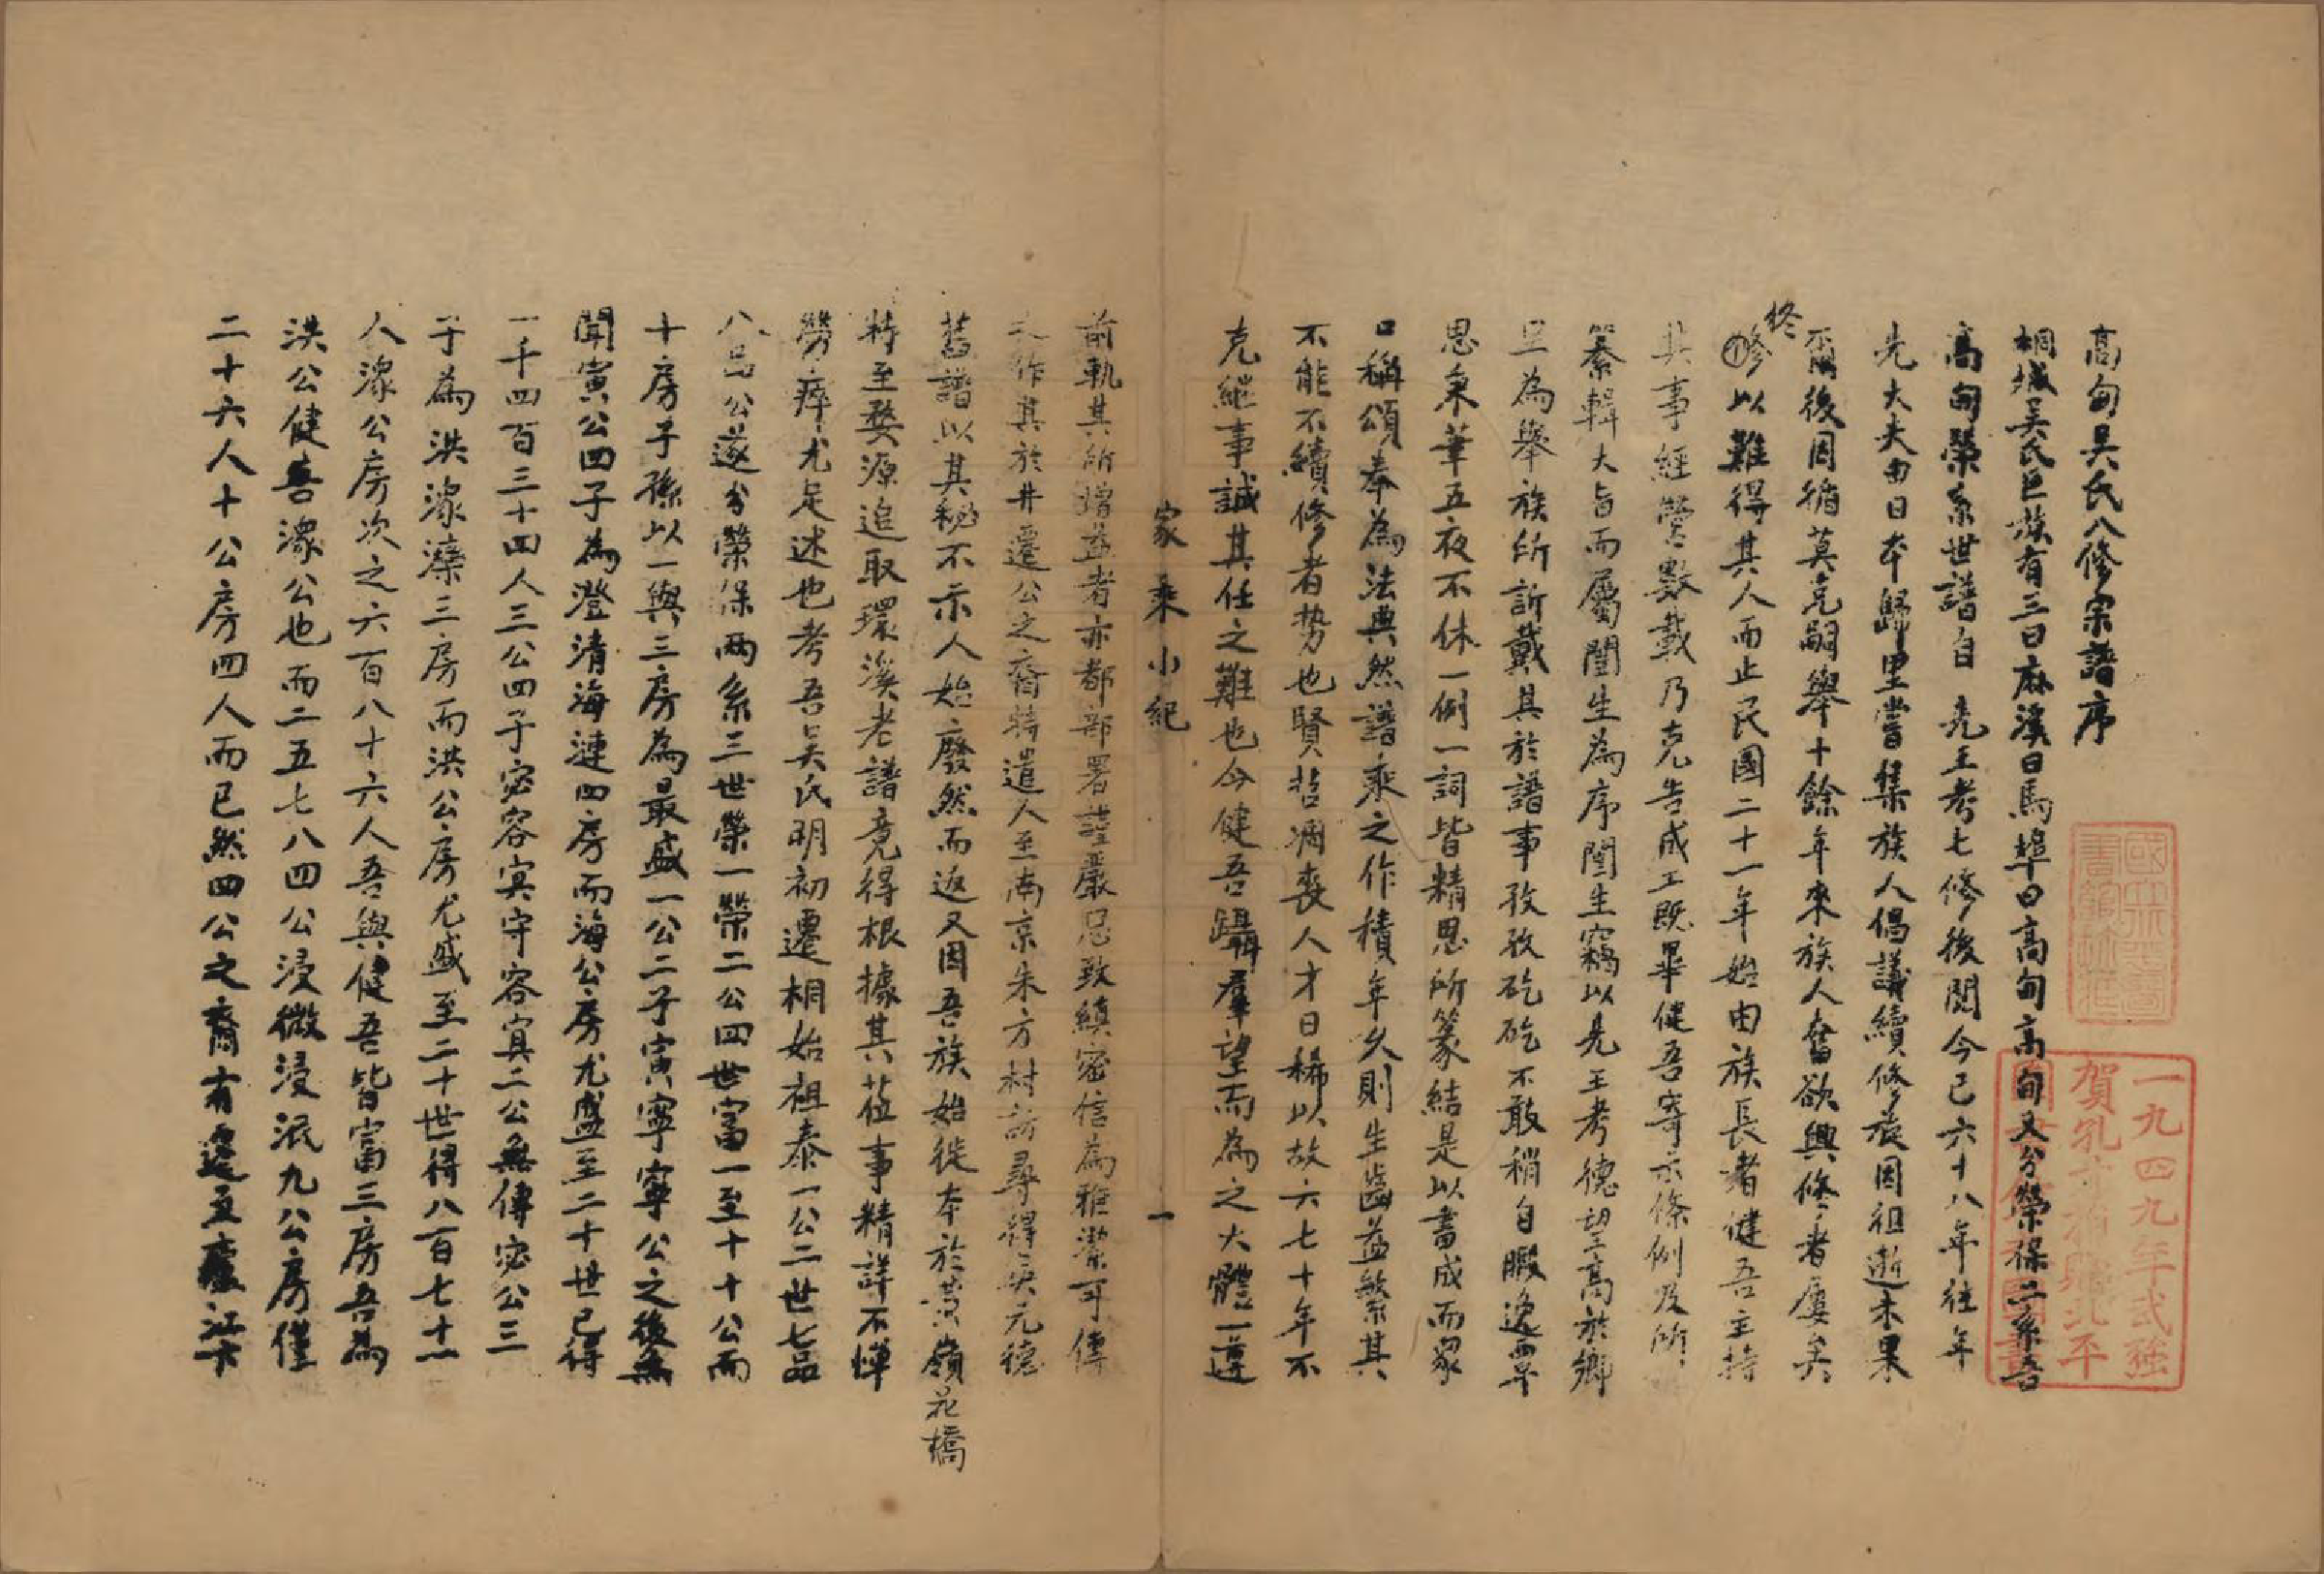 高甸吳氏八修宗譜序
桐城吳氏巨族有三曰麻溪曰馬埠曰高甸高甸又分榮保二系吾
高甸榮系世譜自 先王考七修後閱今已六十八年往年
先大夫由日本歸里嘗集族人倡議續修旋因祖逝未果
爾後因循莫克嗣舉十餘年來族人奮欲興修者屢矣
終
修以難得其人而止民國二十一年始由族長者健吾主持
其事經營數載乃克告成工既畢健吾寄示條例及所
纂輯大旨而屬闓生為序闓生竊以先王考德望高於鄉
里為舉族所訢戴其於譜事孜孜矻矻不敢稍自暇逸覃
思秉筆五夜不休一例一詞皆精思所篆結是以書成而眾
口稱頌奉為法典然譜乘之作積年久則生齒益繁其
不能不續修者勢也賢哲凋喪人才日稀以故六七十年不
克繼事誠其任之難也今健吾躡羣望而為之大體一遵
家乘小紀 一
前軌其所增益者亦都部署謹嚴思致縝密信為雅潔可傳
之作其於井遷公之裔特遣人至南京朱方村訪尋得吳元德
舊譜以其秘不示人始廢然而返又因吾族始徙本於黃嶺花橋
特至婺源追取環溪老譜竟得根據其莅事精詳不憚
勞瘁尤足述也考吾吳氏明初遷桐始祖泰一公二世七品
八品公遂分榮保兩系三世榮一榮二公四世富一至十十公而
十房子孫以一與三房為最盛一公二子寅寧寧公之後無
聞寅公四子為澄清海漣四房而海公房尤盛至二十世已得
一千四百三十四人三公四子宓容寘守容寘二公無傳宓公三
子為洪濠濼三房而洪公房尤盛至二十世得八百七十一
人濠公房次之六百八十六人吾與健吾皆富三房吾為
洪公健吾濠公也而二五七八四公浸微浸泯九公房僅
二十六人十公房四人而已然四公之裔有遷至廬江大
國立北平圖書館珍藏
一九四九年武強賀孔才捐贈北平圖書館之圖書